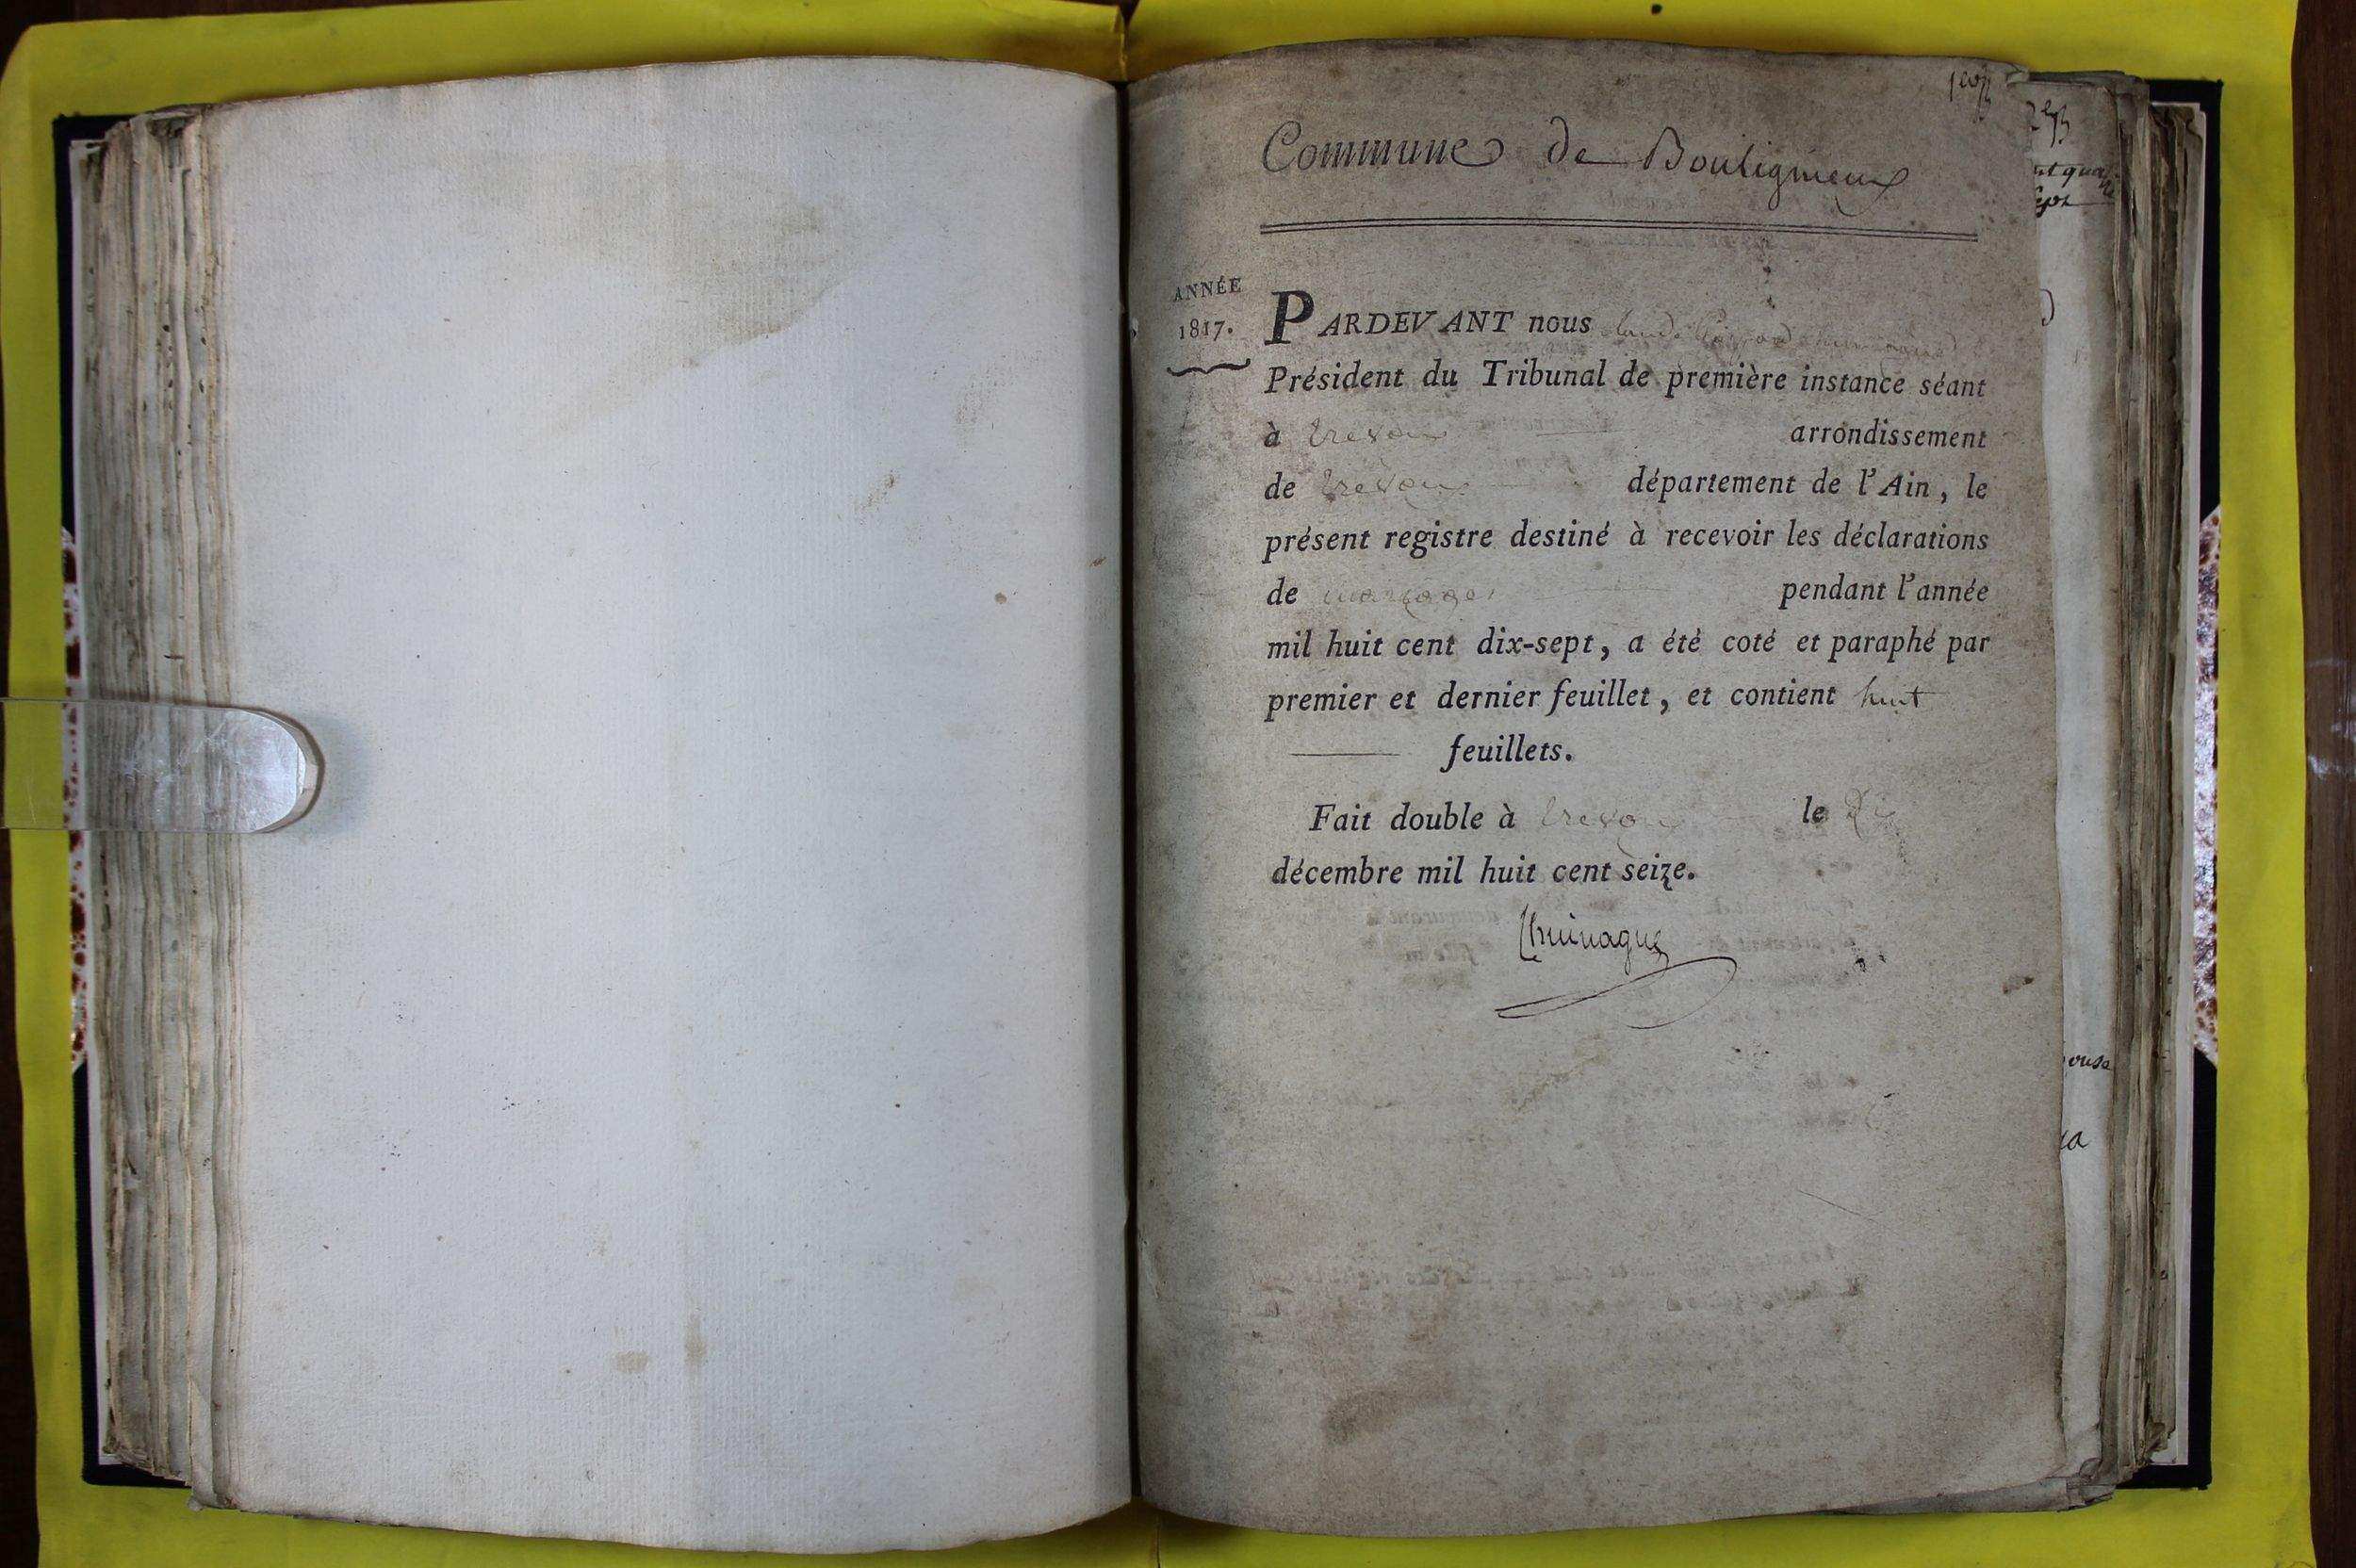 Commune de Bouligneux
ANNÉE
1817.
PARDEVANT nous
Président du Tribunal de première instance séant
à trevoux arrondissement
de trevoux département de l'Ain, le
présent registre destiné à recevoir les déclarations
de mariages pendant l'année
mil huit cent dix-sept, a été coté et paraphé par
premier et dernier feuillet, et contient huit
feuillets.
Fait double à trevoux le
décembre mil huit cent seize.